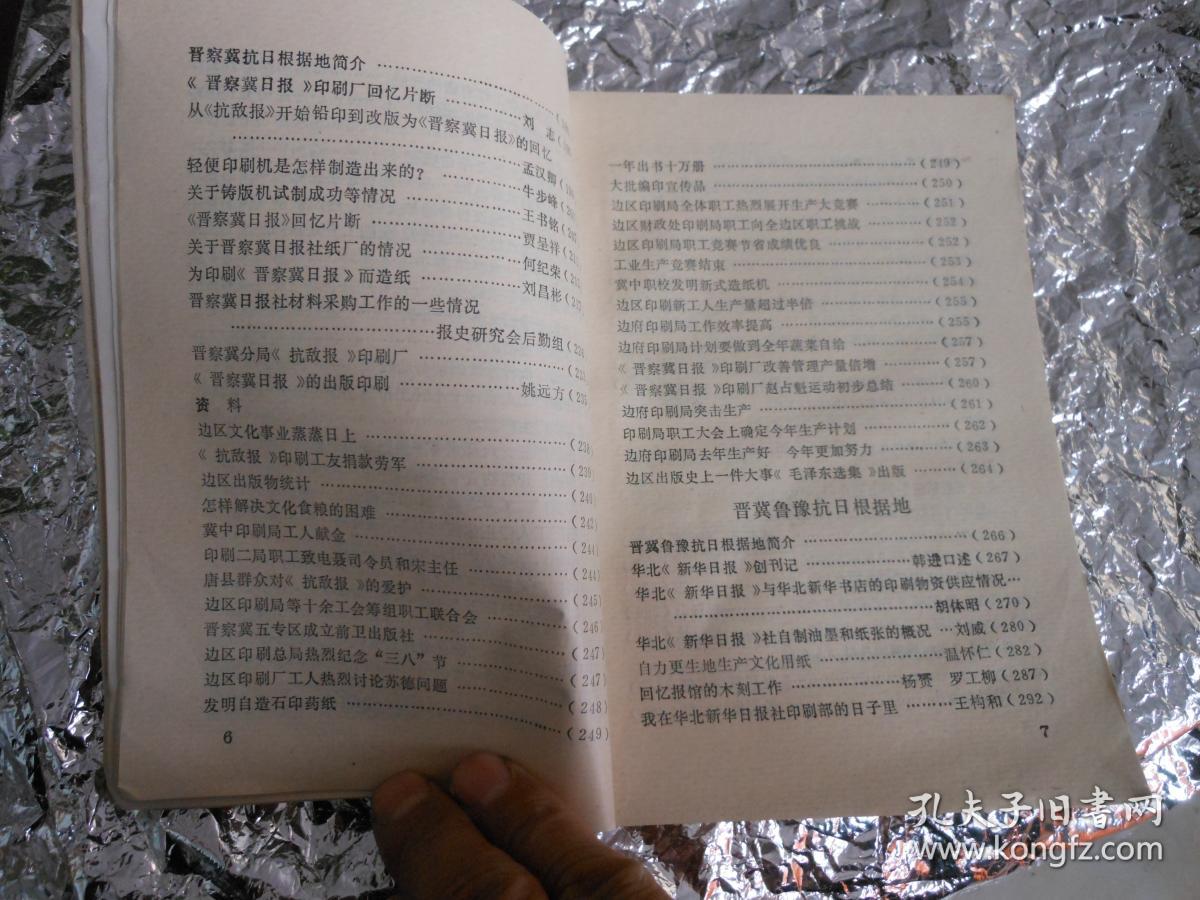 晋察冀抗日根据地简介 ……
《晋察冀日报》印刷厂回忆片断 …… 刘 志
从《抗敌报》开始铅印到改版为《晋察冀日报》的回忆
…… 孟汉卿
轻便印刷机是怎样制造出来的？ …… 牛步峰
关于铸版机试制成功等情况 …… 王书铭
《晋察冀日报》回忆片断 …… 贾呈祥
关于晋察冀日报社纸厂的情况 …… 何纪荣
为印刷《晋察冀日报》而造纸 …… 刘昌彬
晋察冀日报社材料采购工作的一些情况
…… 报史研究会后勤组
晋察冀分局《抗敌报》印刷厂 ……
《晋察冀日报》的出版印刷 …… 姚远方(235
资 料
边区文化事业蒸蒸日上 ……(238)
《抗敌报》印刷工友捐款劳军 ……(239)
边区出版物统计 ……(240)
怎样解决文化食粮的困难 ……(242)
冀中印刷局工人献金 ……(244)
印刷二局职工致电聂司令员和宋主任 ……(244)
唐县群众对《抗敌报》的爱护 ……(245)
边区印刷局等十余工会筹组职工联合会 ……(246)
晋察冀五专区成立前卫出版社 ……(247)
边区印刷总局热烈纪念“三八”节 ……(247)
边区印刷厂工人热烈讨论苏德问题 ……(248)
发明自造石印药纸 ……(249)
6
一年出书十万册 ……(249)
大批编印宣传品 ……(250)
边区印刷局全体职工热烈展开生产大竞赛 ……(251)
边区财政处印刷局职工向全边区职工挑战 ……(252)
边区印刷局职工竞赛节省成绩优良 ……(252)
工业生产竞赛结束 ……(253)
冀中职校发明新式造纸机 ……(254)
边区印刷新工人生产量超过半倍 ……(255)
边府印刷局工作效率提高 ……(255)
边府印刷局计划要做到全年蔬菜自给 ……(257)
《晋察冀日报》印刷厂改善管理产量倍增 ……(257)
《晋察冀日报》印刷厂赵占魁运动初步总结 ……(260)
边府印刷局突击生产 ……(261)
印刷局职工大会上确定今年生产计划 ……(262)
边府印刷局去年生产好 今年更加努力 ……(263)
边区出版史上一件大事《毛泽东选集》出版 ……(264)
晋冀鲁豫抗日根据地
晋冀鲁豫抗日根据地简介 ……(266)
华北《新华日报》创刊记 …… 韩进口述(267)
华北《新华日报》与华北新华书店的印刷物资供应情况…
…… 胡体昭(270)
华北《新华日报》社自制油墨和纸张的概况 …刘威(280)
自力更生地生产文化用纸 …… 温怀仁(282)
回忆报馆的木刻工作 …… 杨赟 罗工柳(287)
我在华北新华日报社印刷部的日子里 …… 王构和(292)
7
孔夫子旧书网
www.kongfz.com